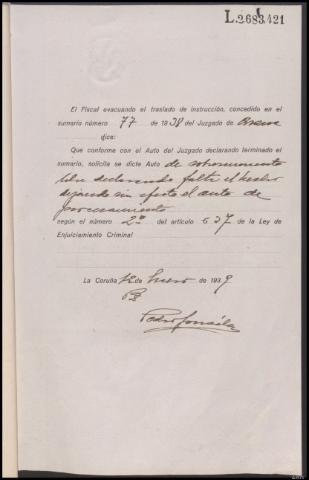 L.2683.421
El Fiscal evacuando el traslado de instrucción, concedido en el
sumario número 77 de 1938 del Juzgado de
dice:
Que conforme con el Auto del Juzgado declarando terminado el
sumario, solicita se dicte Auto de sobreseimiento
libre declarando falta el hecho
dejando sin efecto el auto de
procesamiento
según el número 2º del artículo 637 de la Ley de
Enjuiciamiento Criminal
La Coruña 12 de Enero de 1939
Pedro González